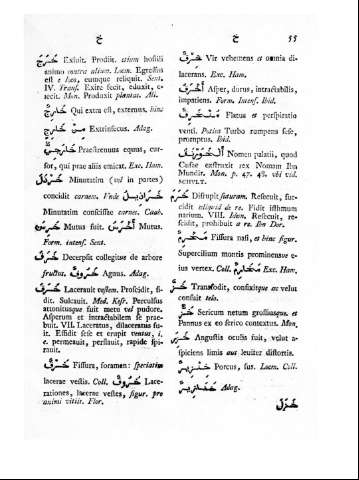 خ خ 55
خَرَجَ Exiuit. Prodiit. etium hostili
animo contra alium. Locm. Egressus
est e loco, eumque reliquit. Sent.
IV. Transf. Exire fecit, eduxit, e-
iecit. Mon. Produxit plantas. Ali.
خَارِجٌ Qui extra est, externus, hinc
مِنْ خَارِجٍ Extrinsecus. Adag.
خَارِجِيٌّ Praestrenuus equus, cur-
sor, qui prae aliis emicat. Exc. Ham.
خَرْدَلَ Minutatim (vel in partes)
concidit carnem. Vnde خَرَادِيلُ
Minutatim concisisse carnes. Caab.
خَرِسَ Mutus fuit. أَخْرَسُ Mutus.
Form. intens. Sent.
خَرَفَ Decerpsit collegitue de arbore
fructus. خَرُوفٌ Agnus. Adag.
خَرَقَ Lacerauit vestem. Proscidit, fi-
dit. Sulcauit. Med. Kasr. Perculsus
attonitusque fuit metu vel pudore.
Asperum et intractabilem se prae-
buit. VII. Laceratus, dilaceratus fu-
it. Effidit sese et erupit ventus, i.
e. permeauit, perflauit, rapide spi-
rauit.
خَرْقٌ Fissura, foramen: speciatim
lacerae vestis. Coll. خُرُوقٌ Lace-
rationes, lacerae vestes, figur. pro
animi vitiis. Flor.
خِرْقٌ Vir vehemens et omnia di-
lacerans. Exc. Ham.
أَخْرَقُ Asper, durus, intractabilis,
impatiens. Form. Intens. Ibid.
مُنْخَرَقٌ Flatus et perspiratio
venti. Potius Turbo rumpens sese,
proruptus. Ibid.
أَلْخَوَرْنَقُ Nomen palatii, quod
Cufae exstruxit rex Noman Ibn
Mundir. Mon. p. 47. 48. vbi vid.
SCHVLT.
خَرَمَ Disrupit suturam. Rescuit, fue-
cidit aliquid de re. Fidit isthmum
narium. VIII. Idem. Resecuit, re-
scidit, prohibuit a re. Ibn Dor.
مَخْرِمٌ Fissura nasi, et hinc figur.
Supercilium montis prominensue e-
ius vertex. Coll. مَخَارِمُ Exc. Ham.
خَزَّ Transfodit, confixitque ac velut
consuit telo.
خَزٌّ Sericum netum grossiusque. et
Pannus ex eo serico contextus. Mon.
خَزِرَ Angustis oculis fuit, velut a-
spiciens limis aut leuiter distortis.
خِنْزِيرٌ Porcus, sus. Locm. Coll.
خَنَازِيرُ Adag.
خَزَلَ